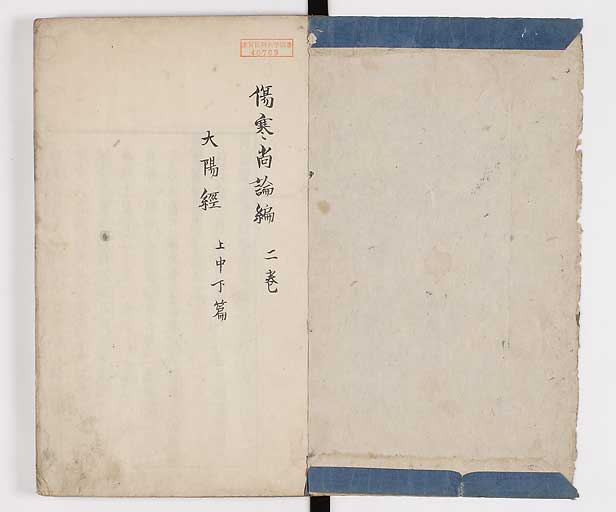 傷寒尚論編 二卷
大陽經 上中下篇
46769